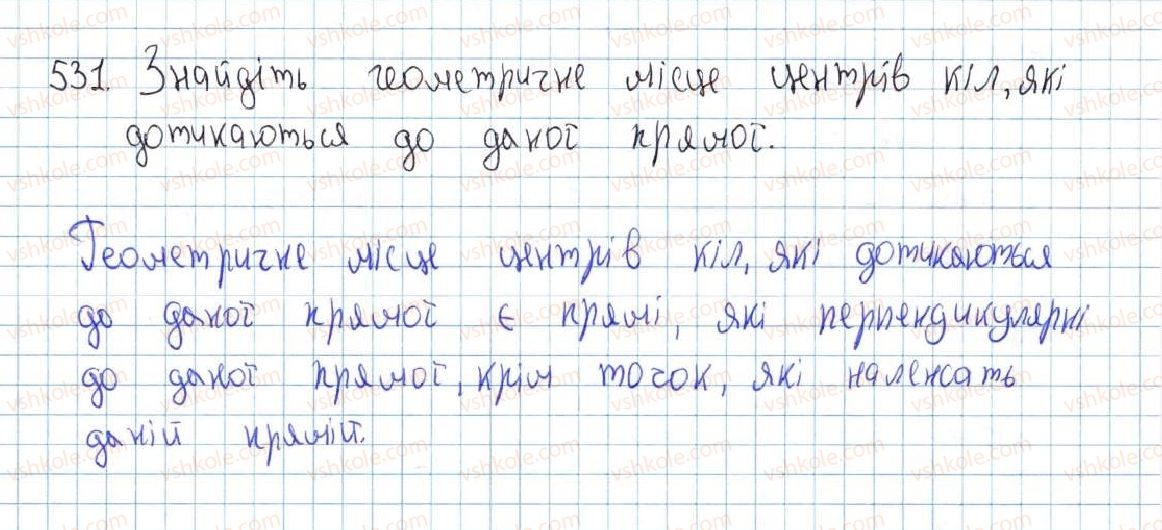 531. Знайдіть геометричне місце центрів кіл, які
дотикаються до даної прямої.
Геометричне місце центрів кіл, які дотикаються
до даної прямої є прямі, які перпендикулярні
до даної прямої, крім точок, які належать
даній прямій.